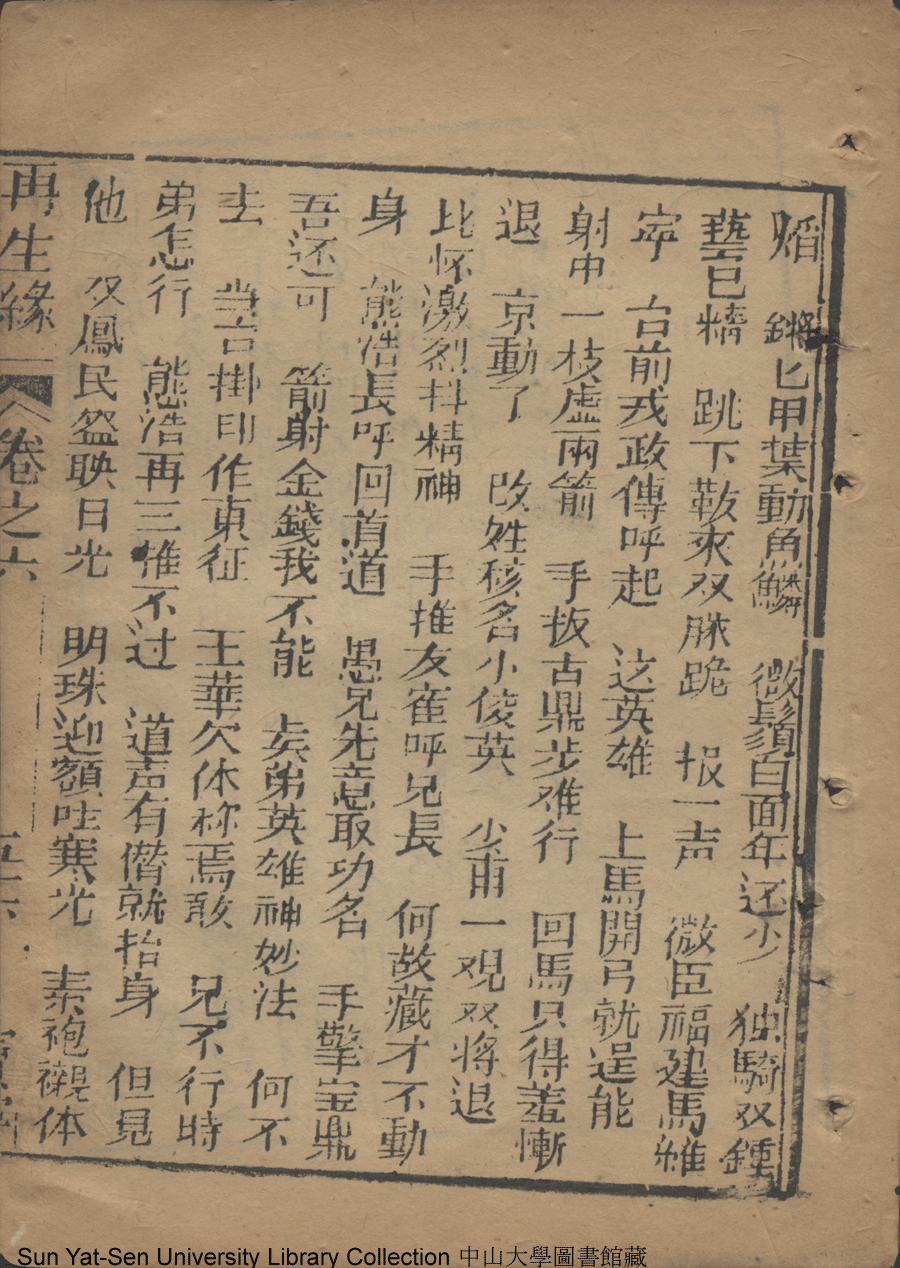 焰 鏘匕甲葉動魚鱗 微鬚白面年还少 独騎双鍾
藝已精 跳下鞍來双膝跪 报一声 微臣福建馬維
寧 台前戎政傳呼起 这英雄 上馬開弓就逞能
射中一枝虛兩箭 手扳古鼎步难行 回馬只得羞慚
退 京動了 改姓移名小俊英 少甫一观双将退
比怀激烈抖精神 手推友崔呼兄長 何故藏才不動
身 熊浩長呼回首道 愚兄先意取功名 手擎宝鼎
吾还可 箭射金錢我不能 矣弟英雄神妙法 何不
去 当台掛印作東征 王華欠体称焉敢 兄不行時
弟怎行 熊浩再三推不过 道声有僭就抬身 但見
他 双鳳民盔映日光 明珠迎額吐寒光 素袍襯体
再生緣 卷之六
Sun Yat-Sen University Library Collection 中山大學圖書館藏